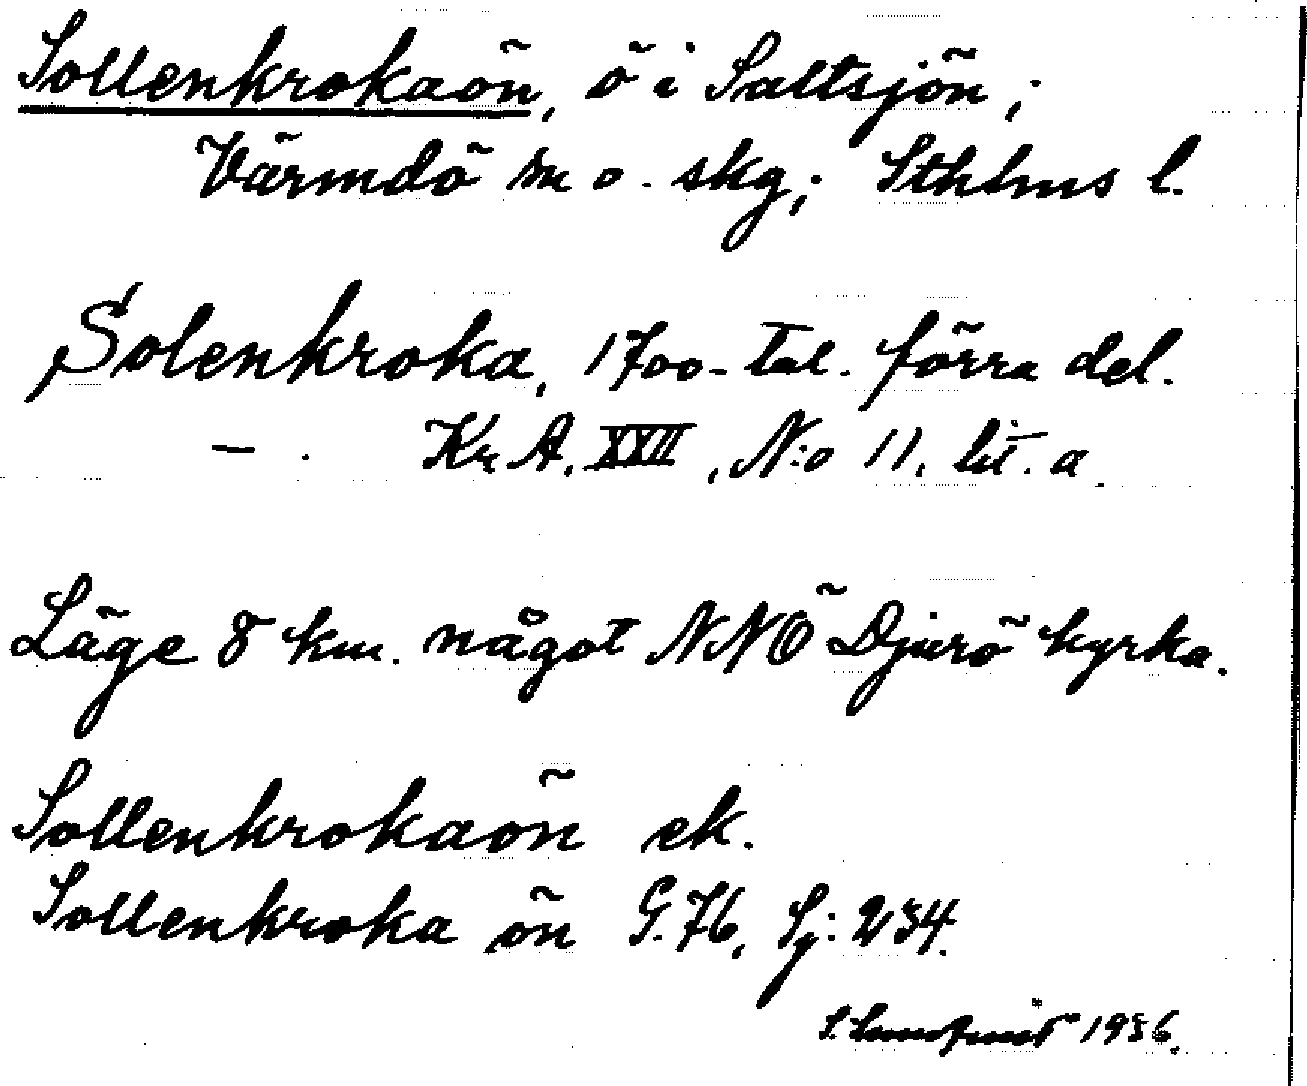 Sollenkrokaön, ö i Saltsjön;
Värmdö sn o. skg; Sthlms l.
Solenkroka, 1700-tal. förra del.
— . Kr. A. XXII, N:o 11. lit. a.
Läge 8 km. något NNÖ Djurö kyrka.
Sollenkrokaön ek.
Sollenkroka ön G. 76, Sj: 234.
1936.